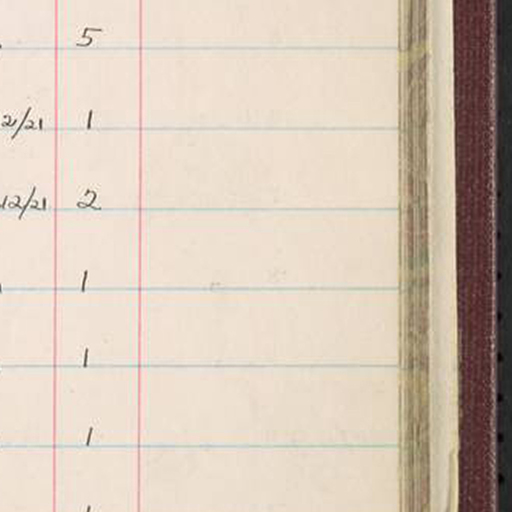 5
2/21 1
12/21 2
1
1
1